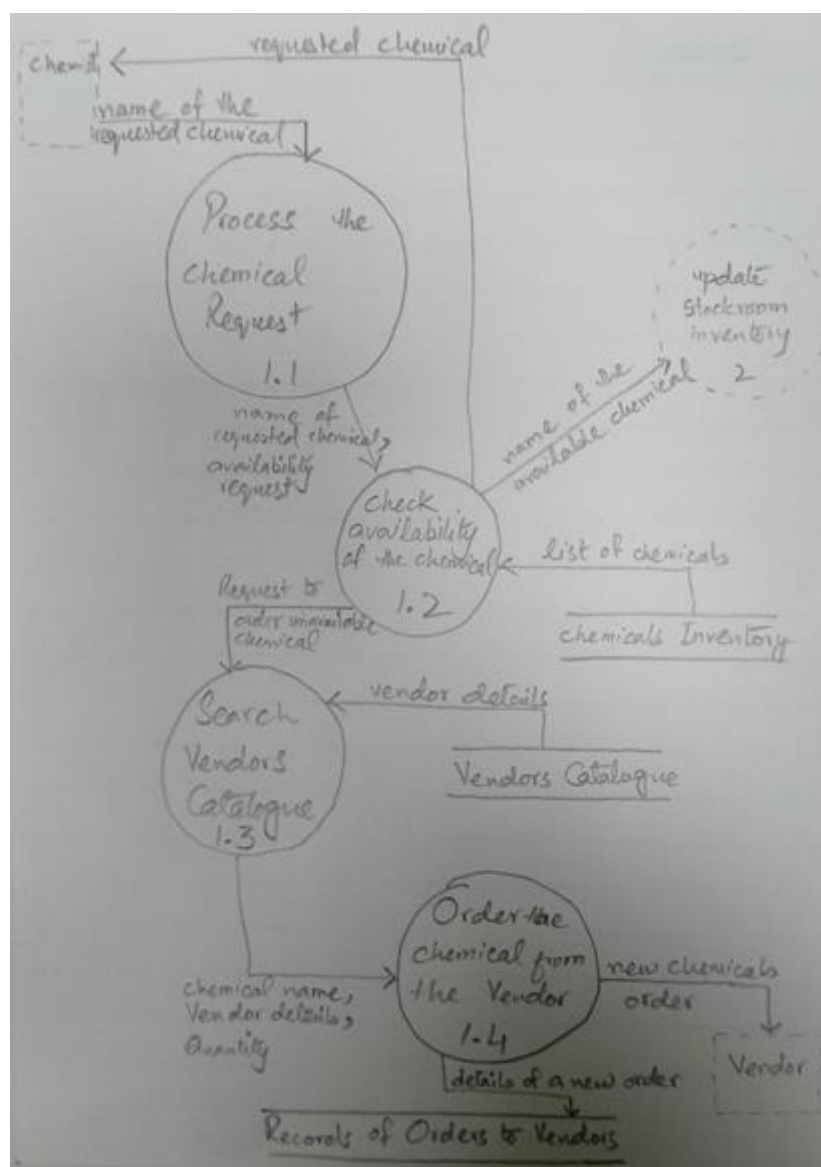 requested chemical
name of the
requested chemical
Process the
chemical
Request
1.1
update
stockroom
inventory
2
name of the
available chemical
name of
requested chemical,
availability
request
check
availability
of the chemical
1.2
list of chemicals
chemicals Inventory
Request to
order unavailable
chemical
Search
Vendors
Catalogue
1.3
vendor details
Vendors Catalogue
Order the
chemical from
the Vendor
1.4
chemical name,
Vendor details,
Quantity
new chemicals
order
Vendor
details of a new order
Records of Orders to Vendors